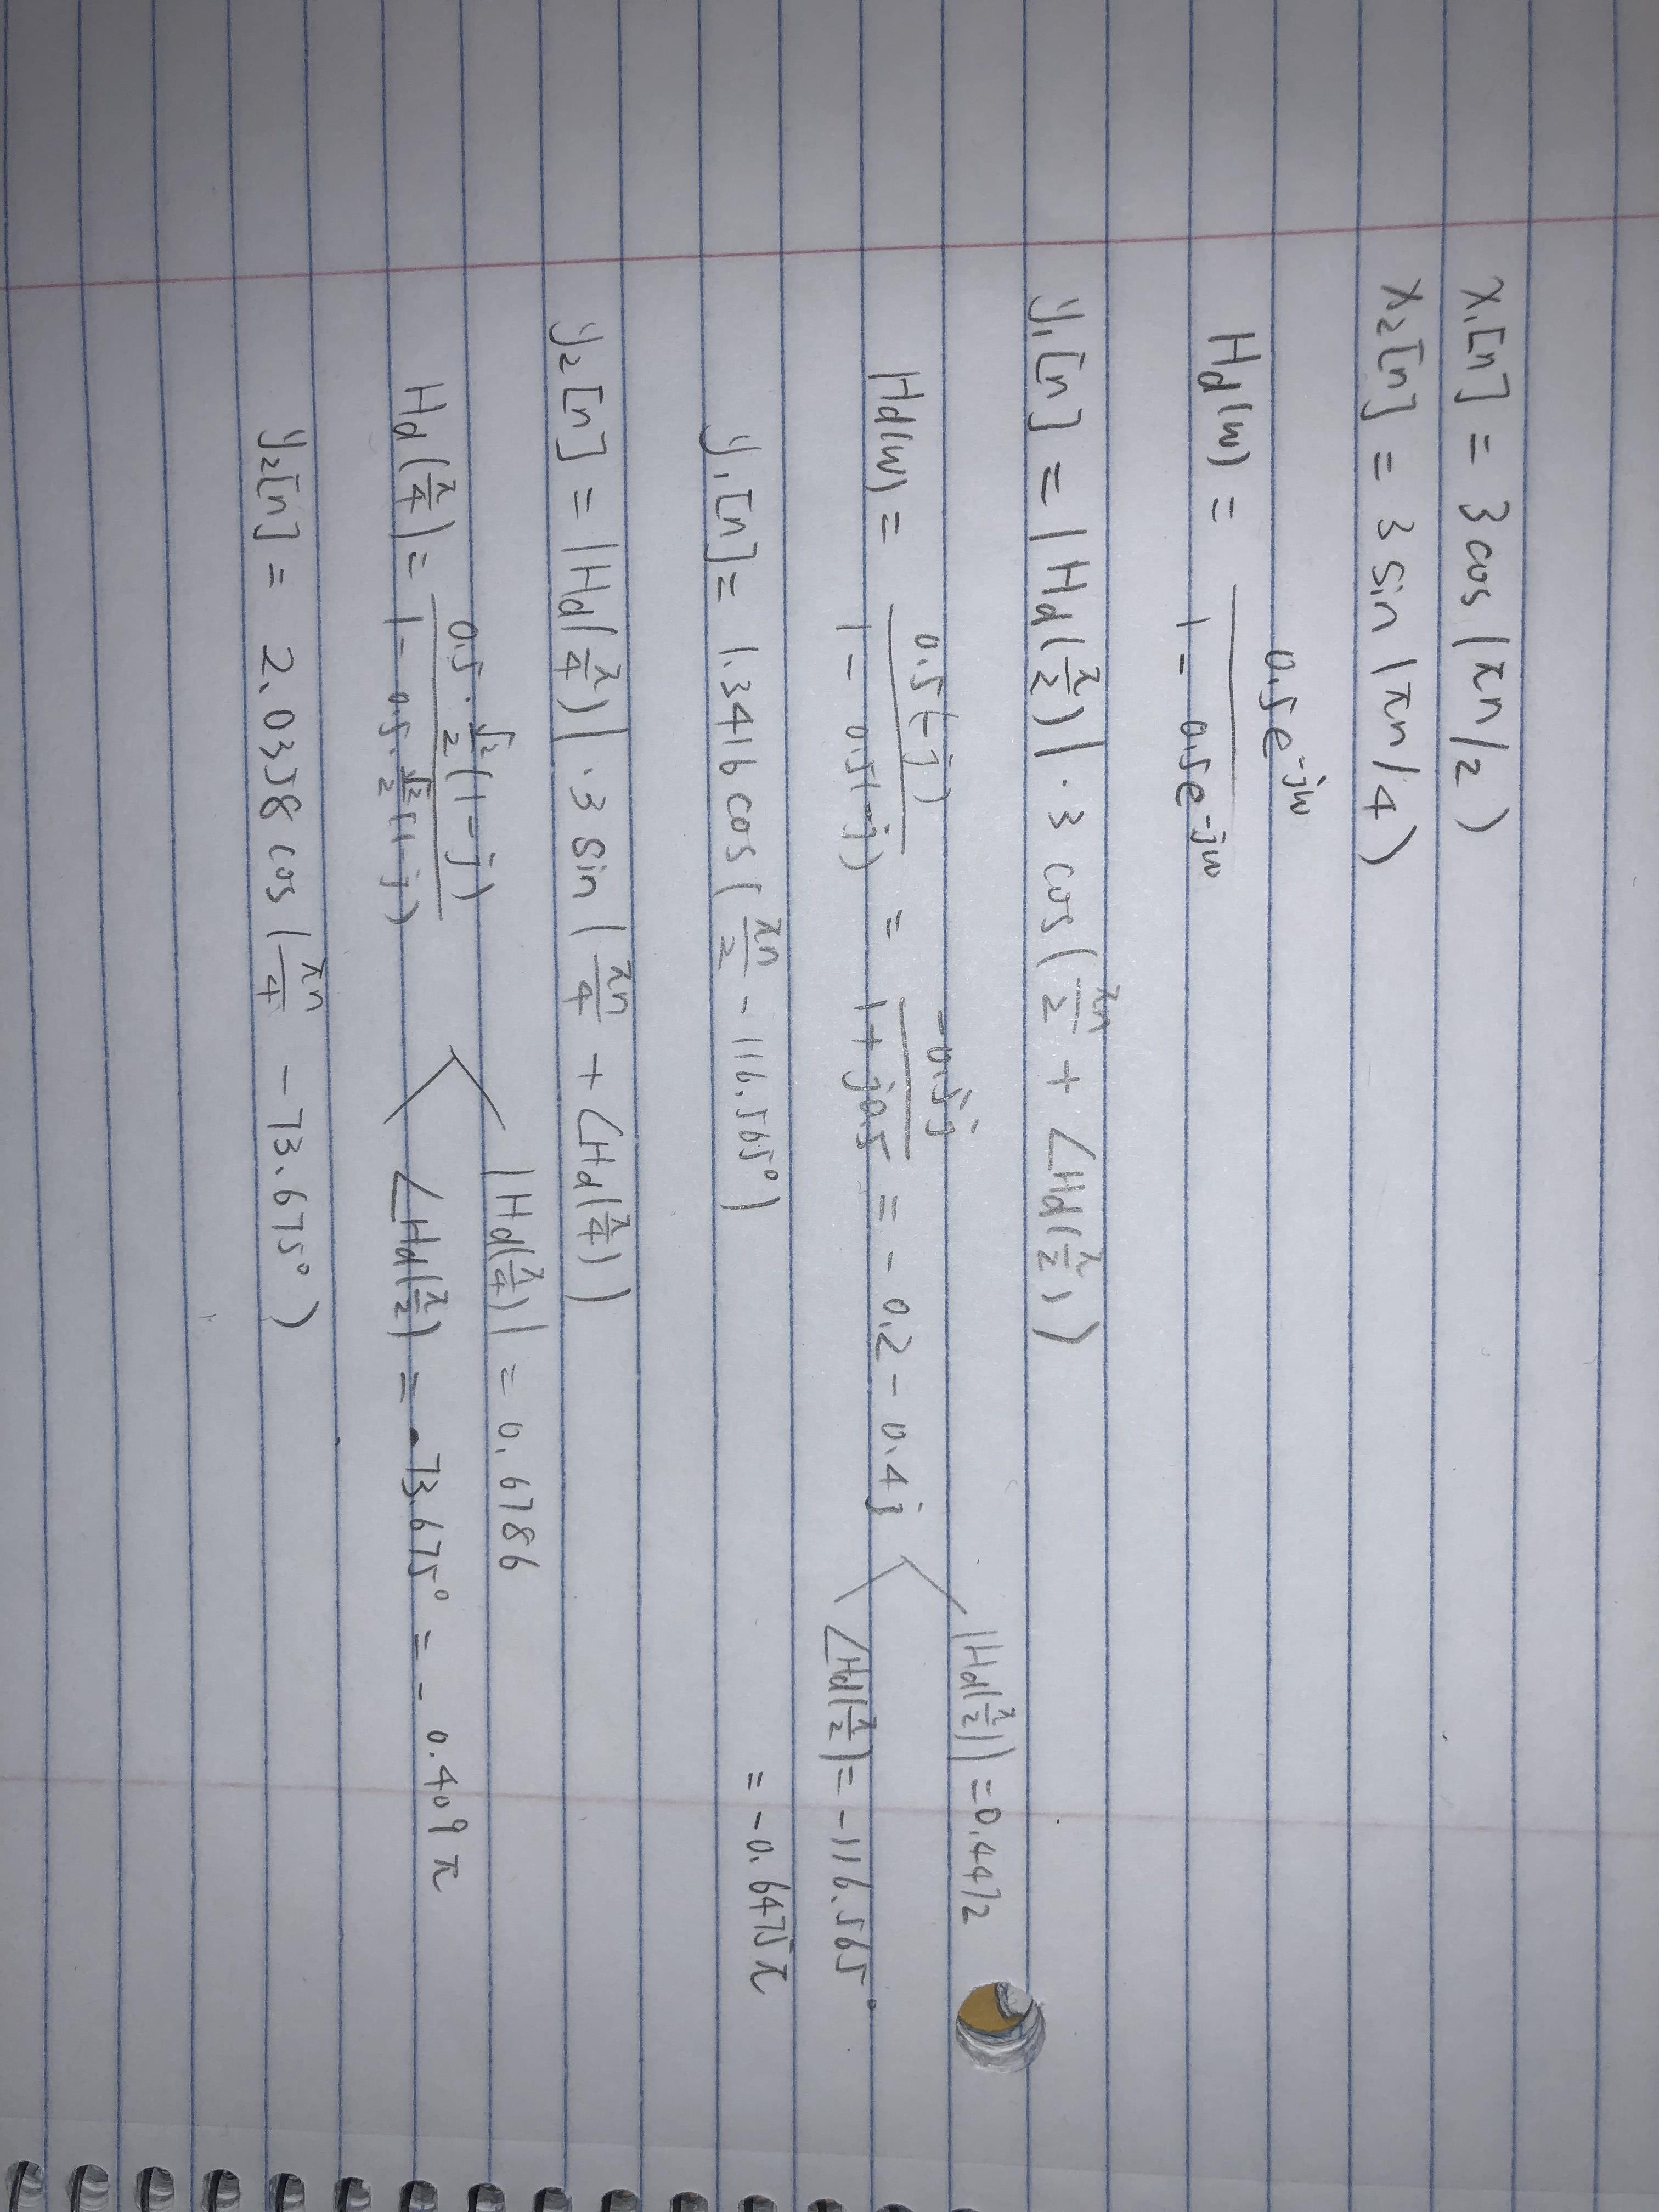 x₁[n] = 3 cos (πn/2)
x₂[n] = 3 sin (πn/4)
Hd(ω) = 0.5e^-jω / 1 - 0.5e^-jω
y₁[n] = |Hd(π/2)| · 3 cos (πn/2 + ∠Hd(π/2))
Hd(ω) = 0.5(-j) / 1 - 0.5(-j) = -0.5j / 1 + j0.5 = -0.2 - 0.4j
|Hd(π/2)| = 0.4472
∠Hd(π/2) = -116.565°
= -0.6475π
y₁[n] = 1.3416 cos (πn/2 - 116.565°)
y₂[n] = |Hd(π/4)| · 3 sin (πn/4 + ∠Hd(π/4))
Hd(π/4) = 0.5 · √2/2 (1-j) / 1 - 0.5 · √2/2 (1-j)
|Hd(π/4)| = 0.6786
∠Hd(π/2) = -73.675° = -0.409π
y₂[n] = 2.0358 cos (πn/4 - 73.675°)